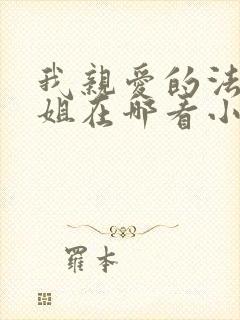 我親愛的法
姐在哪看小
羅本